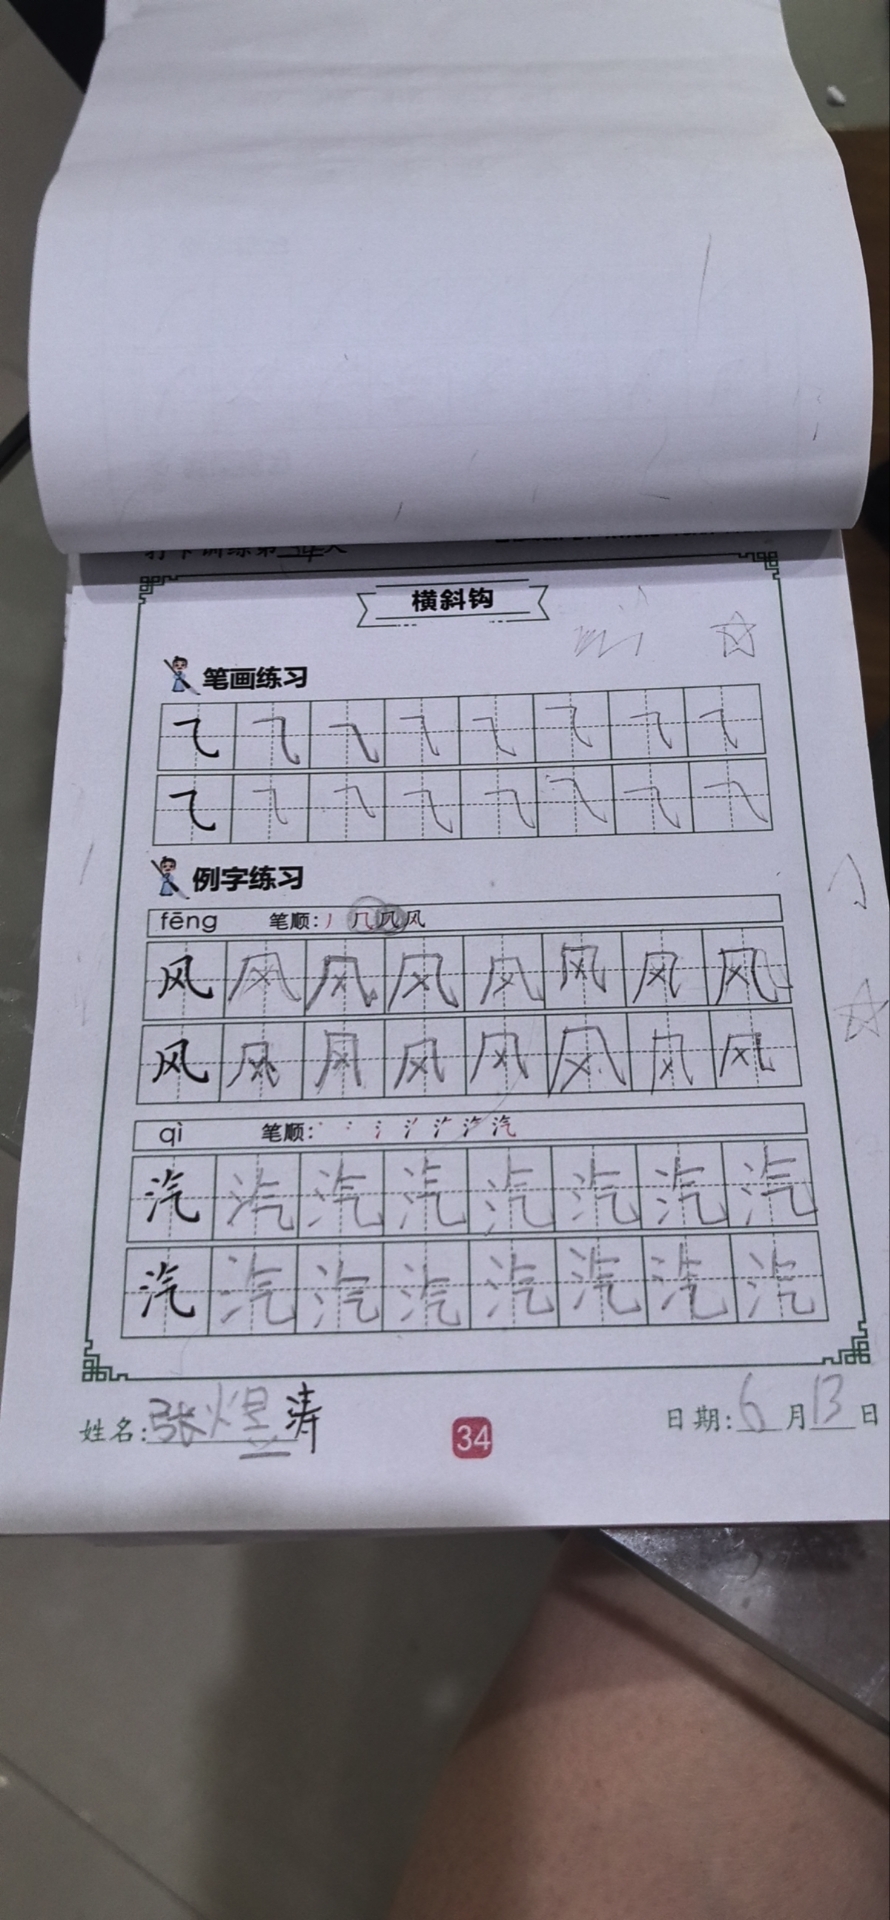 打卡训练第34天
横斜钩
笔画练习
例字练习
fēng 笔顺:丿 几 凤 风
风 风 风 风 风 风 风 风
风 风 风 风 风 风 风 风
qì 笔顺:
汽 汽 汽 汽 汽 汽 汽 汽
汽 汽 汽 汽 汽 汽 汽 汽
姓名:张煜涛
34
日期:6月13日